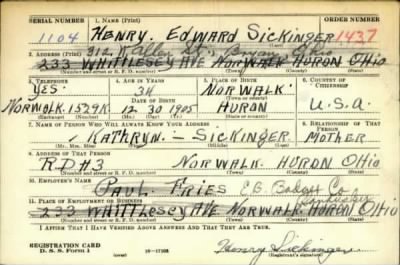 SERIAL NUMBER 1. NAME (Print) ORDER NUMBER
1104 HENRY. EDWARD SICKINGER 1437
312 N Allen St., Bryan, Ohio
2. ADDRESS (Print)
233 WHITTLESEY AVE NORWALK HURON OHIO
(Number and street or R. F. D. number) (Town) (County) (State)
3. TELEPHONE 4. AGE IN YEARS 5. PLACE OF BIRTH 6. COUNTRY OF CITIZENSHIP
YES. 34 NORWALK
DATE OF BIRTH
NORWALK. 1529K 12 30 1905 HURON U.S.A
(Exchange) (Number) (Mo.) (Day) (Yr.) (State or country)
7. NAME OF PERSON WHO WILL ALWAYS KNOW YOUR ADDRESS 8. RELATIONSHIP OF THAT PERSON
KATHRYN. - SICKINGER MOTHER
(Mr., Mrs., Miss) (First) (Middle) (Last)
9. ADDRESS OF THAT PERSON
RD#3 NORWALK. HURON OHIO
(Number and street or R. F. D. number) (Town) (County) (State)
10. EMPLOYER'S NAME
PAUL. FRIES Co
11. PLACE OF EMPLOYMENT OR BUSINESS Sandusky
233 WHITTLESEY AVE NORWALK HURON OHIO
(Number and street or R. F. D. number) (Town) (County) (State)
I AFFIRM THAT I HAVE VERIFIED ABOVE ANSWERS AND THAT THEY ARE TRUE.
REGISTRATION CARD
D. S. S. Form 1 16-17105 Henry Sickinger